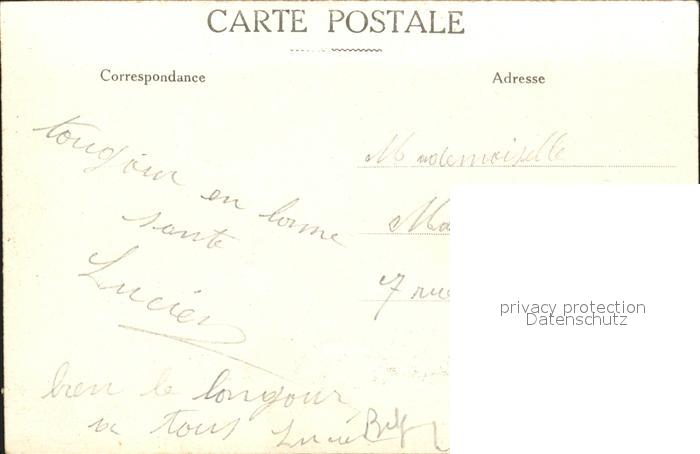 CARTE POSTALE
Correspondance
Adresse
toujour en bonne
sante
Lucien
bien le bonjour
a tous Lucien
Mademoiselle
Ma
7 rue
privacy protection
Datenschutz